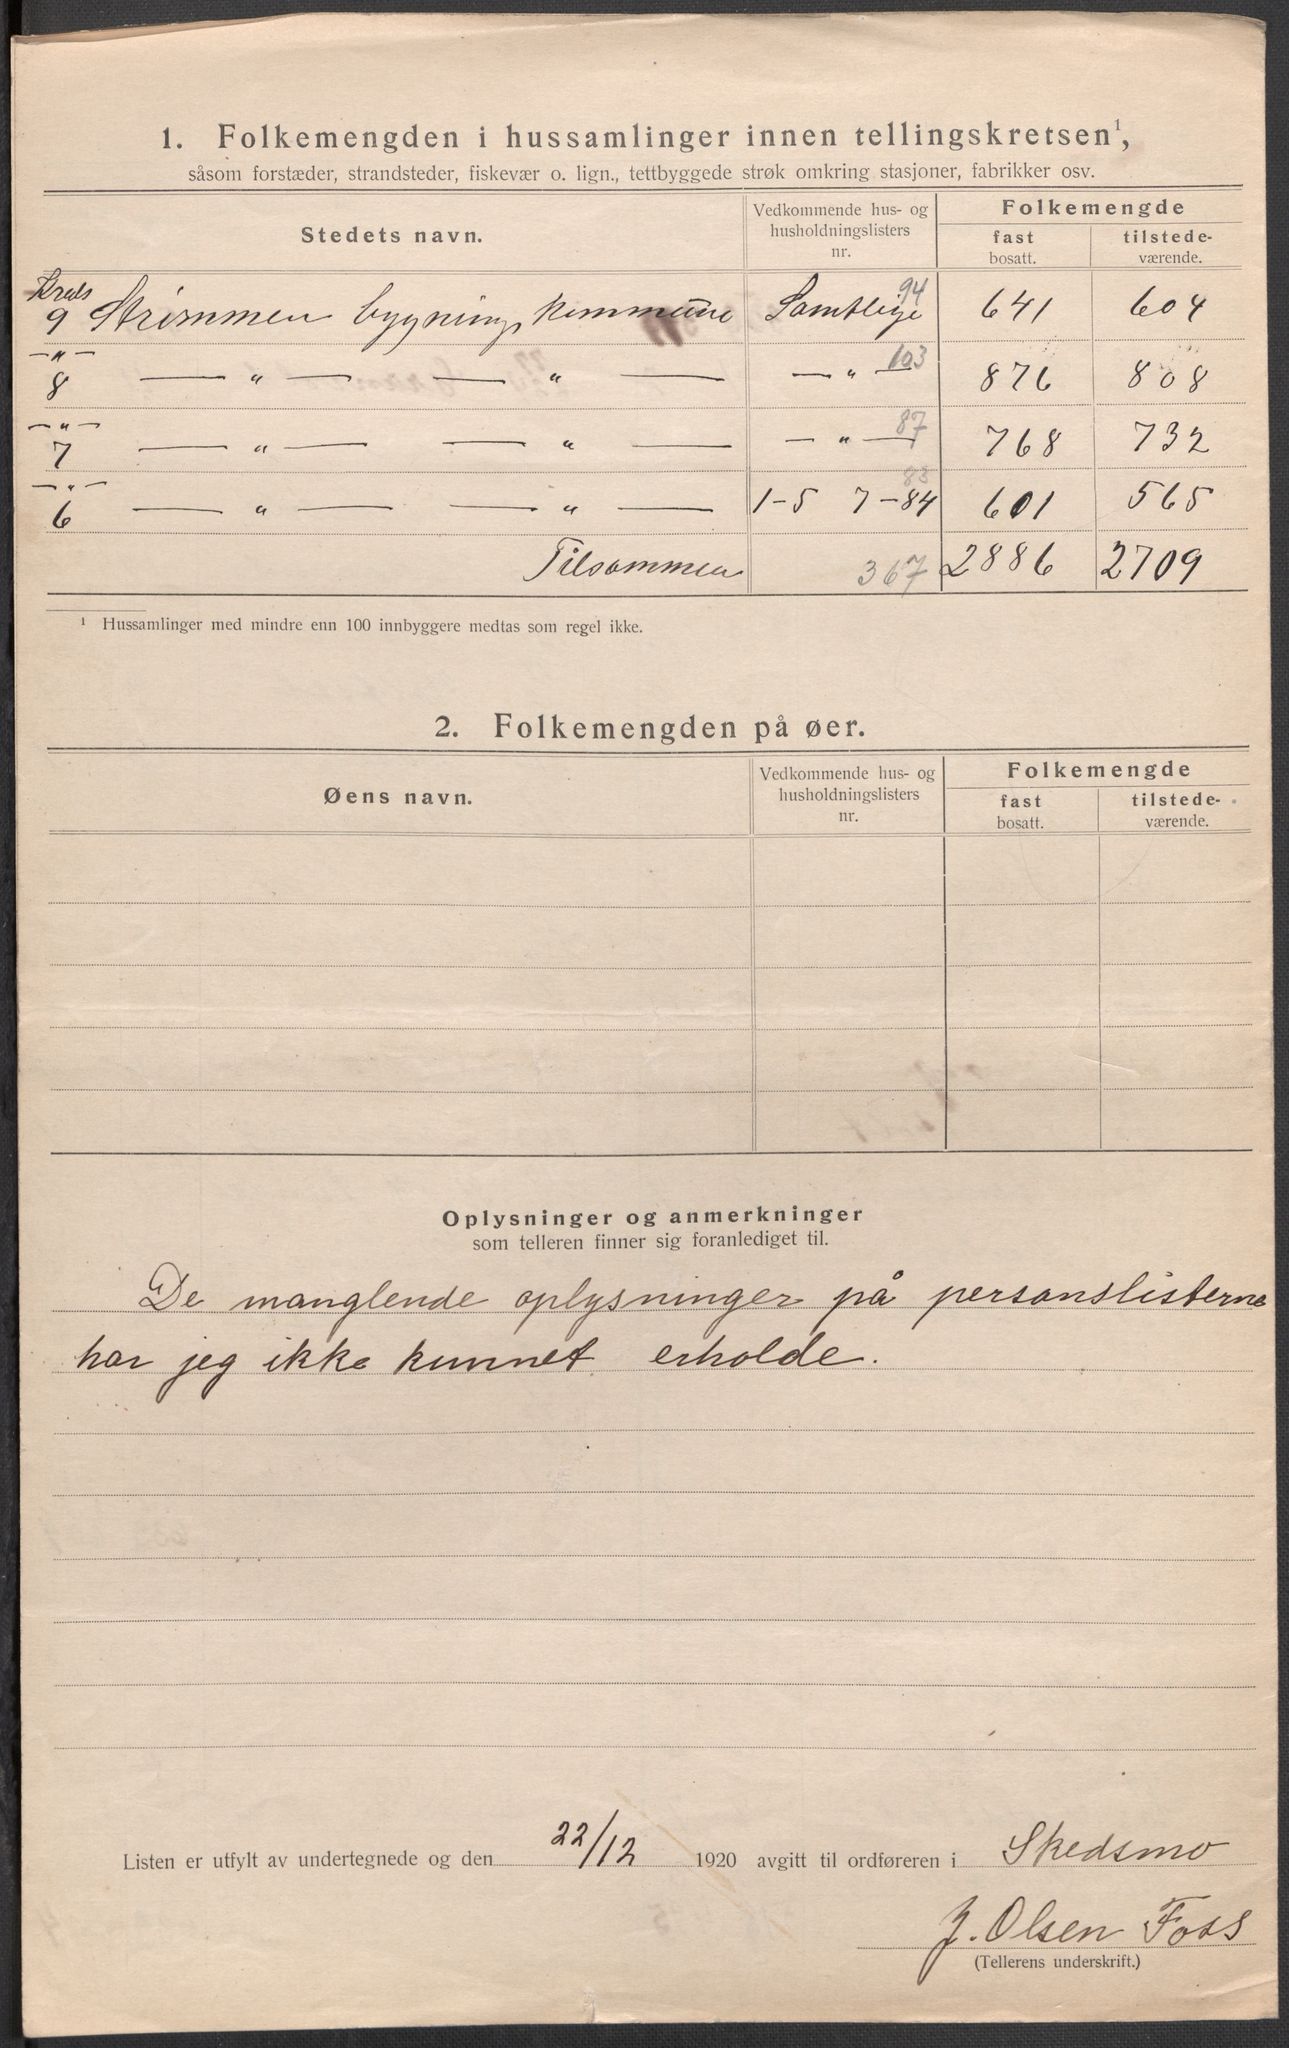 1. Folkemengden i hussamlinger innen tellingskretsen¹,
såsom forstæder, strandsteder, fiskevær o. lign., tettbyggede strøk omkring stasjoner, fabrikker osv.
Stedets navn. Vedkommende hus- og husholdningslisters nr. Folkemengde
fast bosatt. tilstede-værende.
Kreds 9 Strømmen bygningskommune Samtlige 94 641 604
—"— 8 — " — — " — — " — 103 876 808
—"— 7 — " — — " — — " — 87 768 732
—"— 6 — " — — " — 1-5 7-84 83 601 565
Tilsammen 367 2886 2709
¹ Hussamlinger med mindre enn 100 innbyggere medtas som regel ikke.
2. Folkemengden på øer.
Øens navn. Vedkommende hus- og husholdningslisters nr. Folkemengde
fast bosatt. tilstede-værende.
Oplysninger og anmerkninger
som telleren finner sig foranlediget til.
De manglende oplysninger på personslisterne
har jeg ikke kunnet erholde.
Listen er utfylt av undertegnede og den 22/12 1920 avgitt til ordføreren i Skedsmo
J. Olsen Foss
(Tellerens underskrift.)